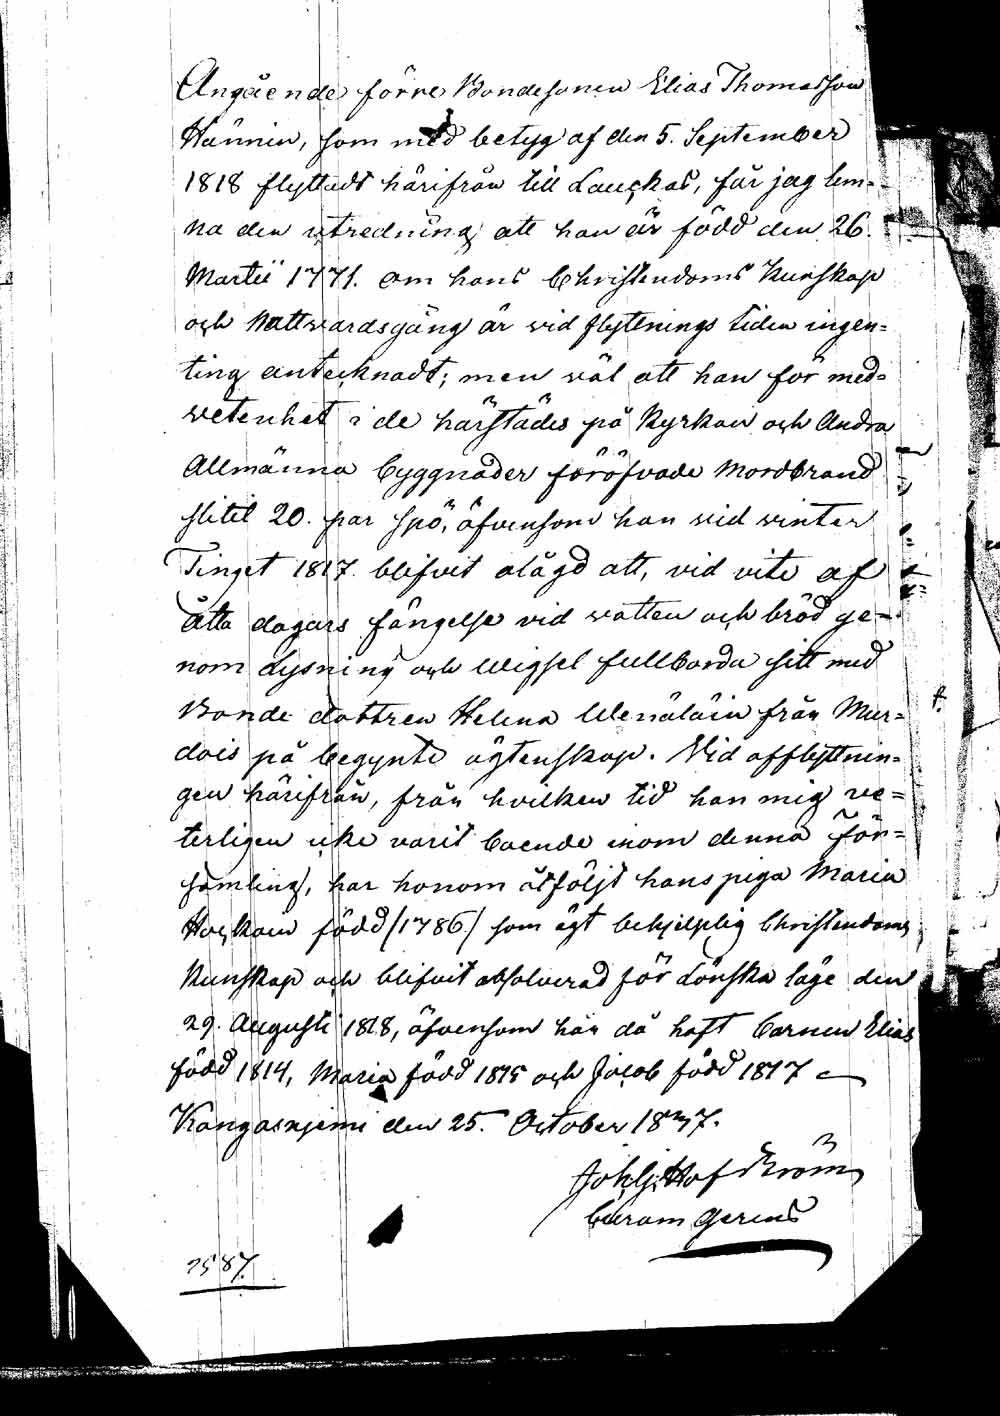 Angående förre Bondesonen Elias Thomasson
Hännin, som med betyg af den 5. September
1818 flyttadt härifrån till Lauckas, får jag lem-
na den utredning att han är född den 26.
Martii 1771. om hans Christendoms Kunskap
och Nattvardsgång är vid flyttnings tiden ingen-
ting antecknadt; men väl att han för med-
vetenhet i de härstädes på Kyrkan och Andra
Allmänna byggnader föröfvade Mordbrand
slitit 20. par spö, äfvensom han vid winter
Tinget 1817. blifvit ålagd att, vid vite af
åtta dagars fängelse vid vatten och bröd ge-
nom Lysning och Wigsel fullborda sitt med
Bonde dottren Helena Wenäläin från Mur-
dois på begynte ägtenskap. Vid afflyttnin-
gen härifrån, från hvilken tid han mig ve-
terligen icke varit boende inom denna för-
samling, har honom åtföljt hans piga Maria
född /1786./ som ägt behjelplig Christendoms
Kunskap och blifvit absolverad för Lönska läge den
29. Augusti 1818, äfvensom har då haft barnen Elias
född 1814, Maria född 1815 och Jacob född 1817
Kangasnjemi den 25. October 1837.
Joh. G. Hofström
Curam Gerens
2587.